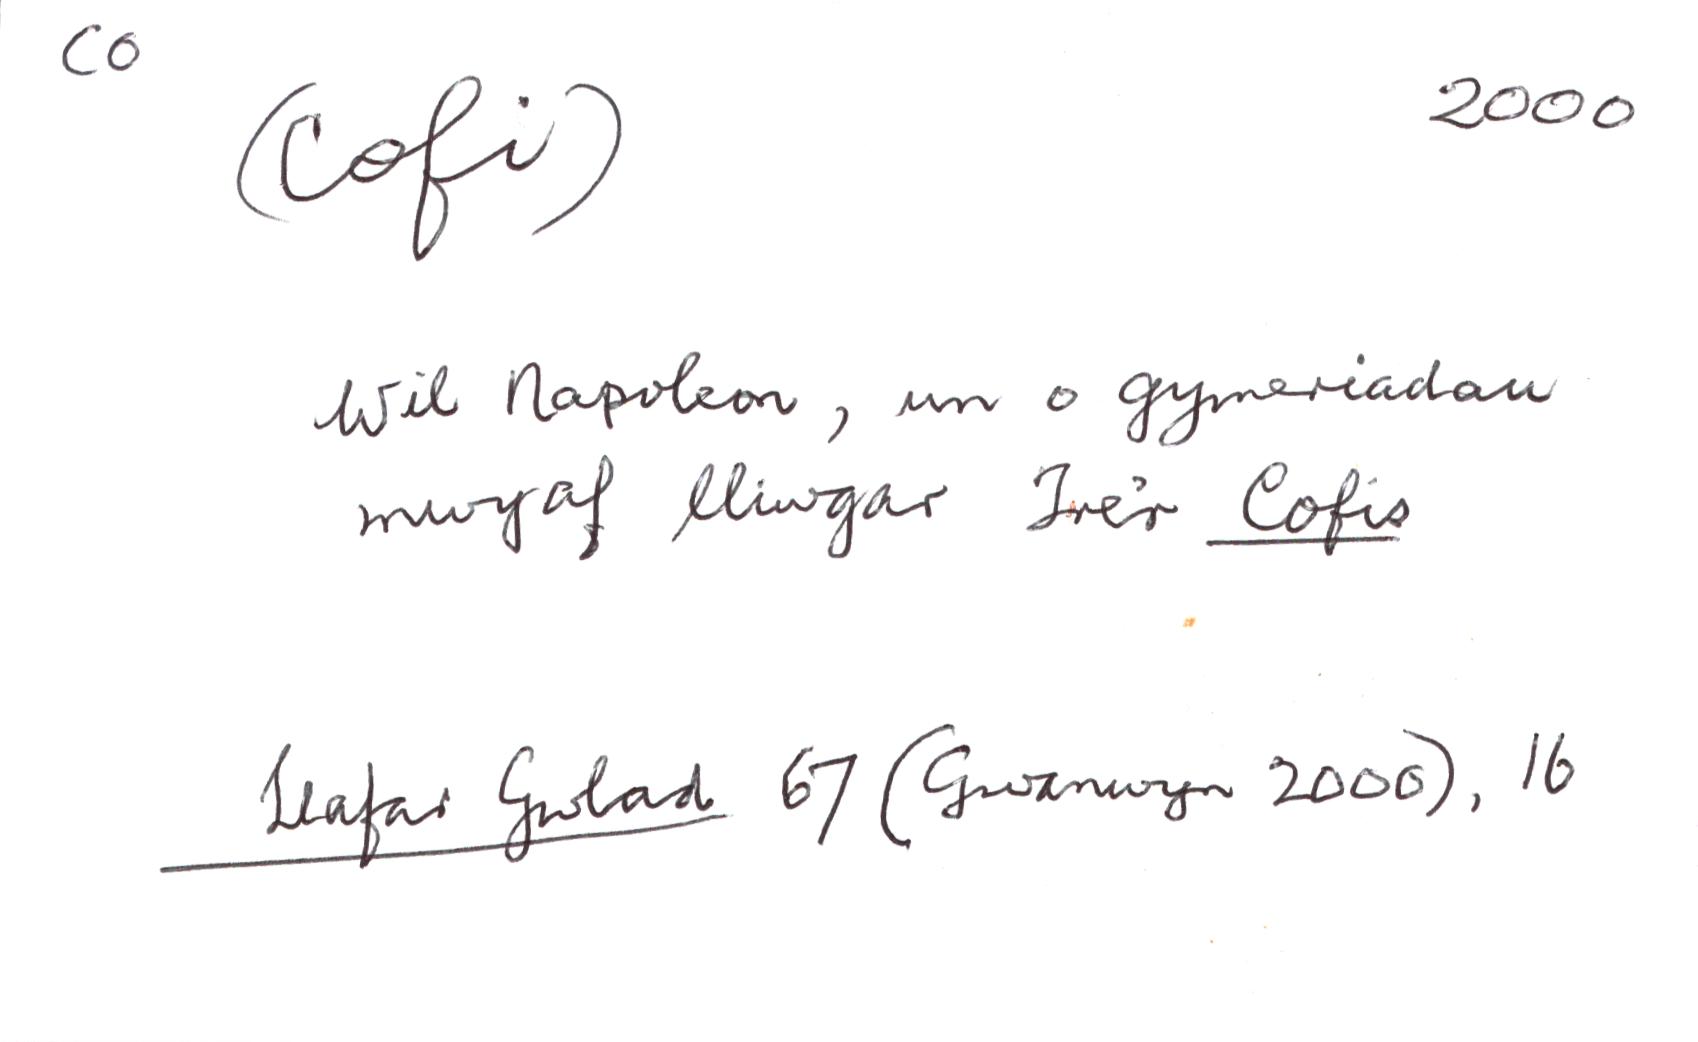 CO
2000
(Cofi)
Wil Napoleon, un o gymeriadau
mwyaf lliwgar Tre'r Cofis
Llafar Gwlad 67 (Gwanwyn 2000), 16